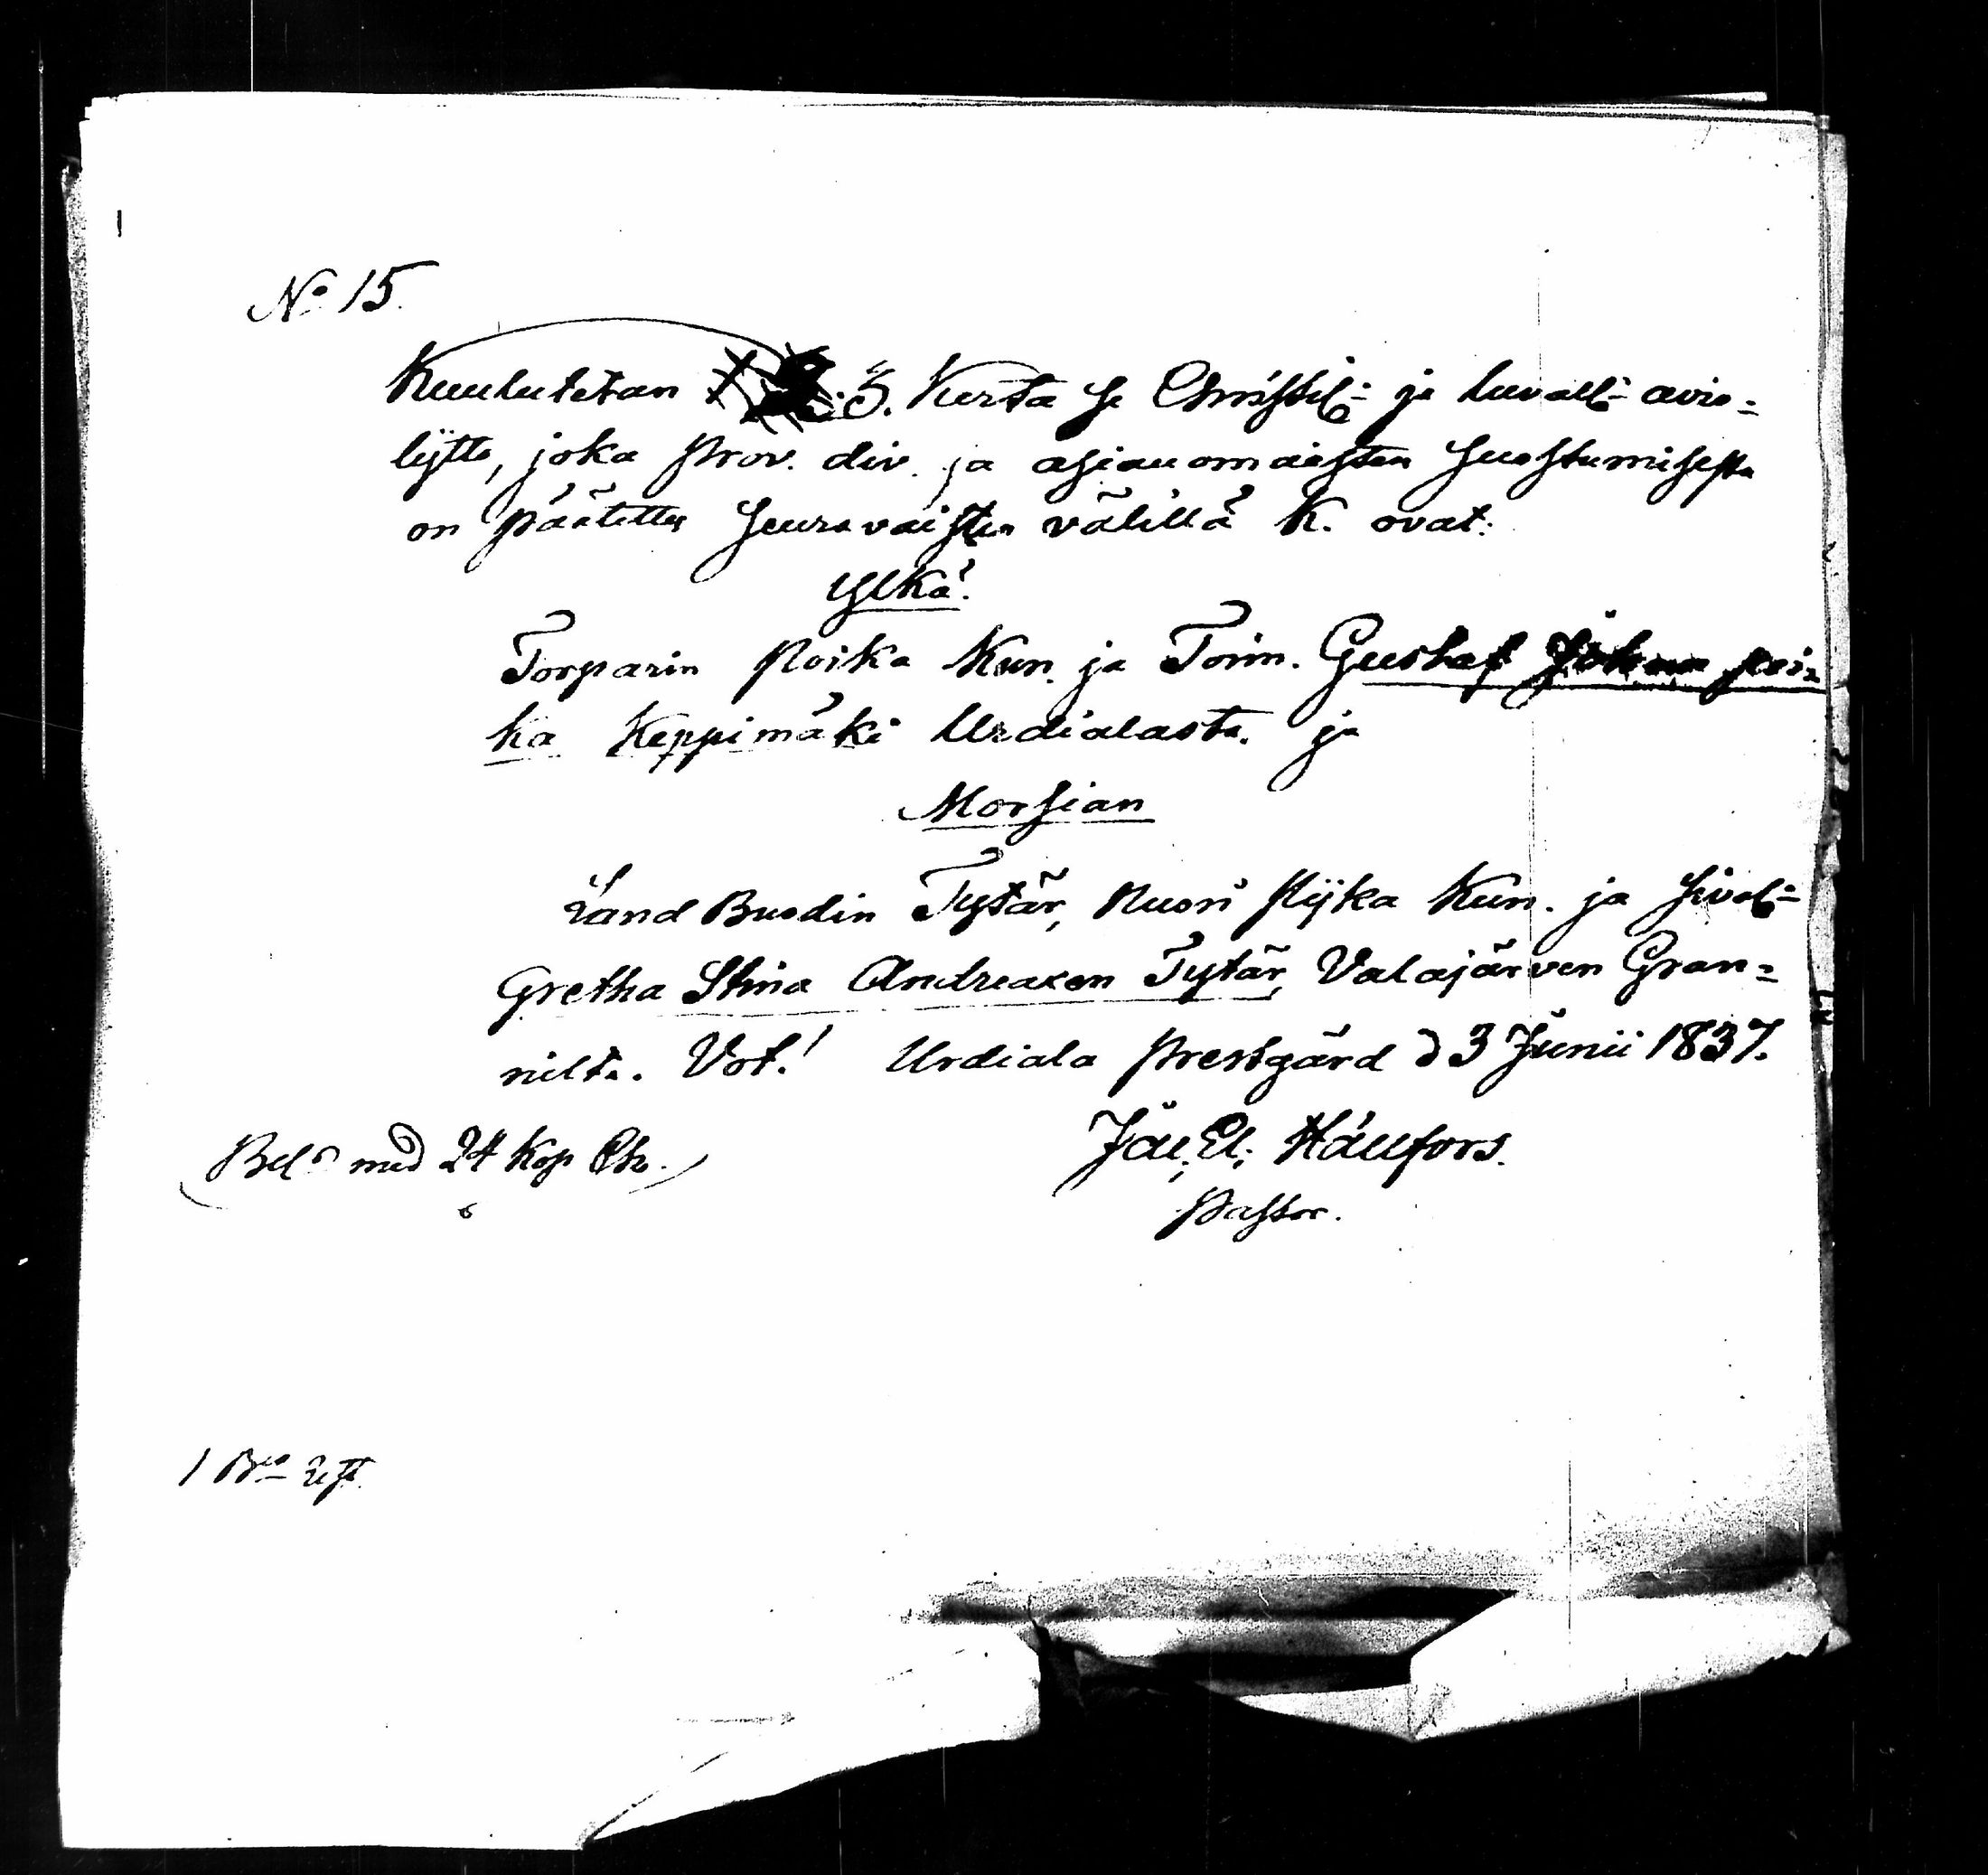 No 15.
Kuulutetan 3. Kerta se Christil= ja luvall= avio=
lijtto, joka prov. div. ja asianomaisten suostumisesta
on päätetty seuravaisten välillä K. ovat:
Ylkä:
Torparin Poika Kun. ja Toim. Gustaf Johan poi=
ka Keppimäki Urdialasta. ja
Morsian
Land Buodin Tytär, Nuori Pijka Kun. ja sivol=
Gretha Stina Andreaxen Tytär, Valajärven Gran=
nilta. Vot! Urdiala Prestgård d 3 Junii 1837.
Hällfors.
Pastor.
Bel med 24 Kop
1